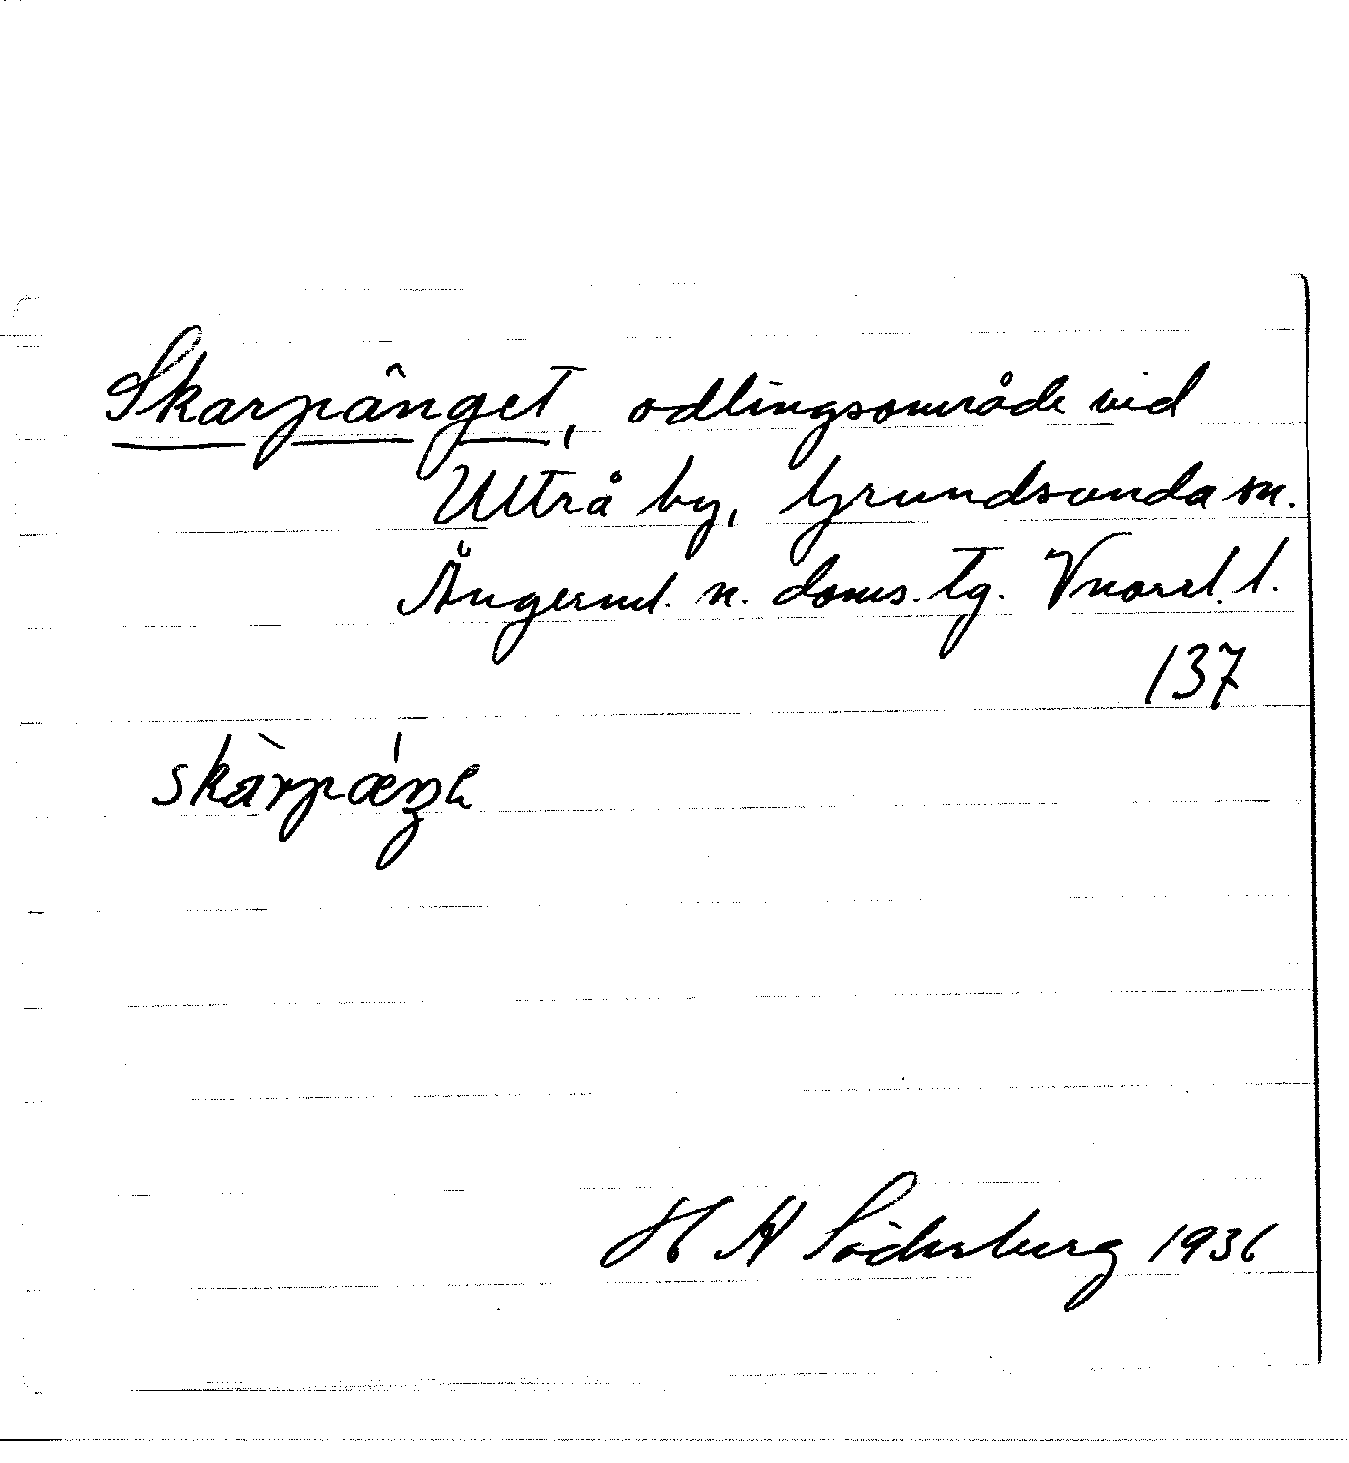 Skarpänget, odlingsområde vid
Ultrå by, Grundsunda sn.
Ångerml. n. doms. tg. Vnorrl. l.
137
H A Söderberg 1936